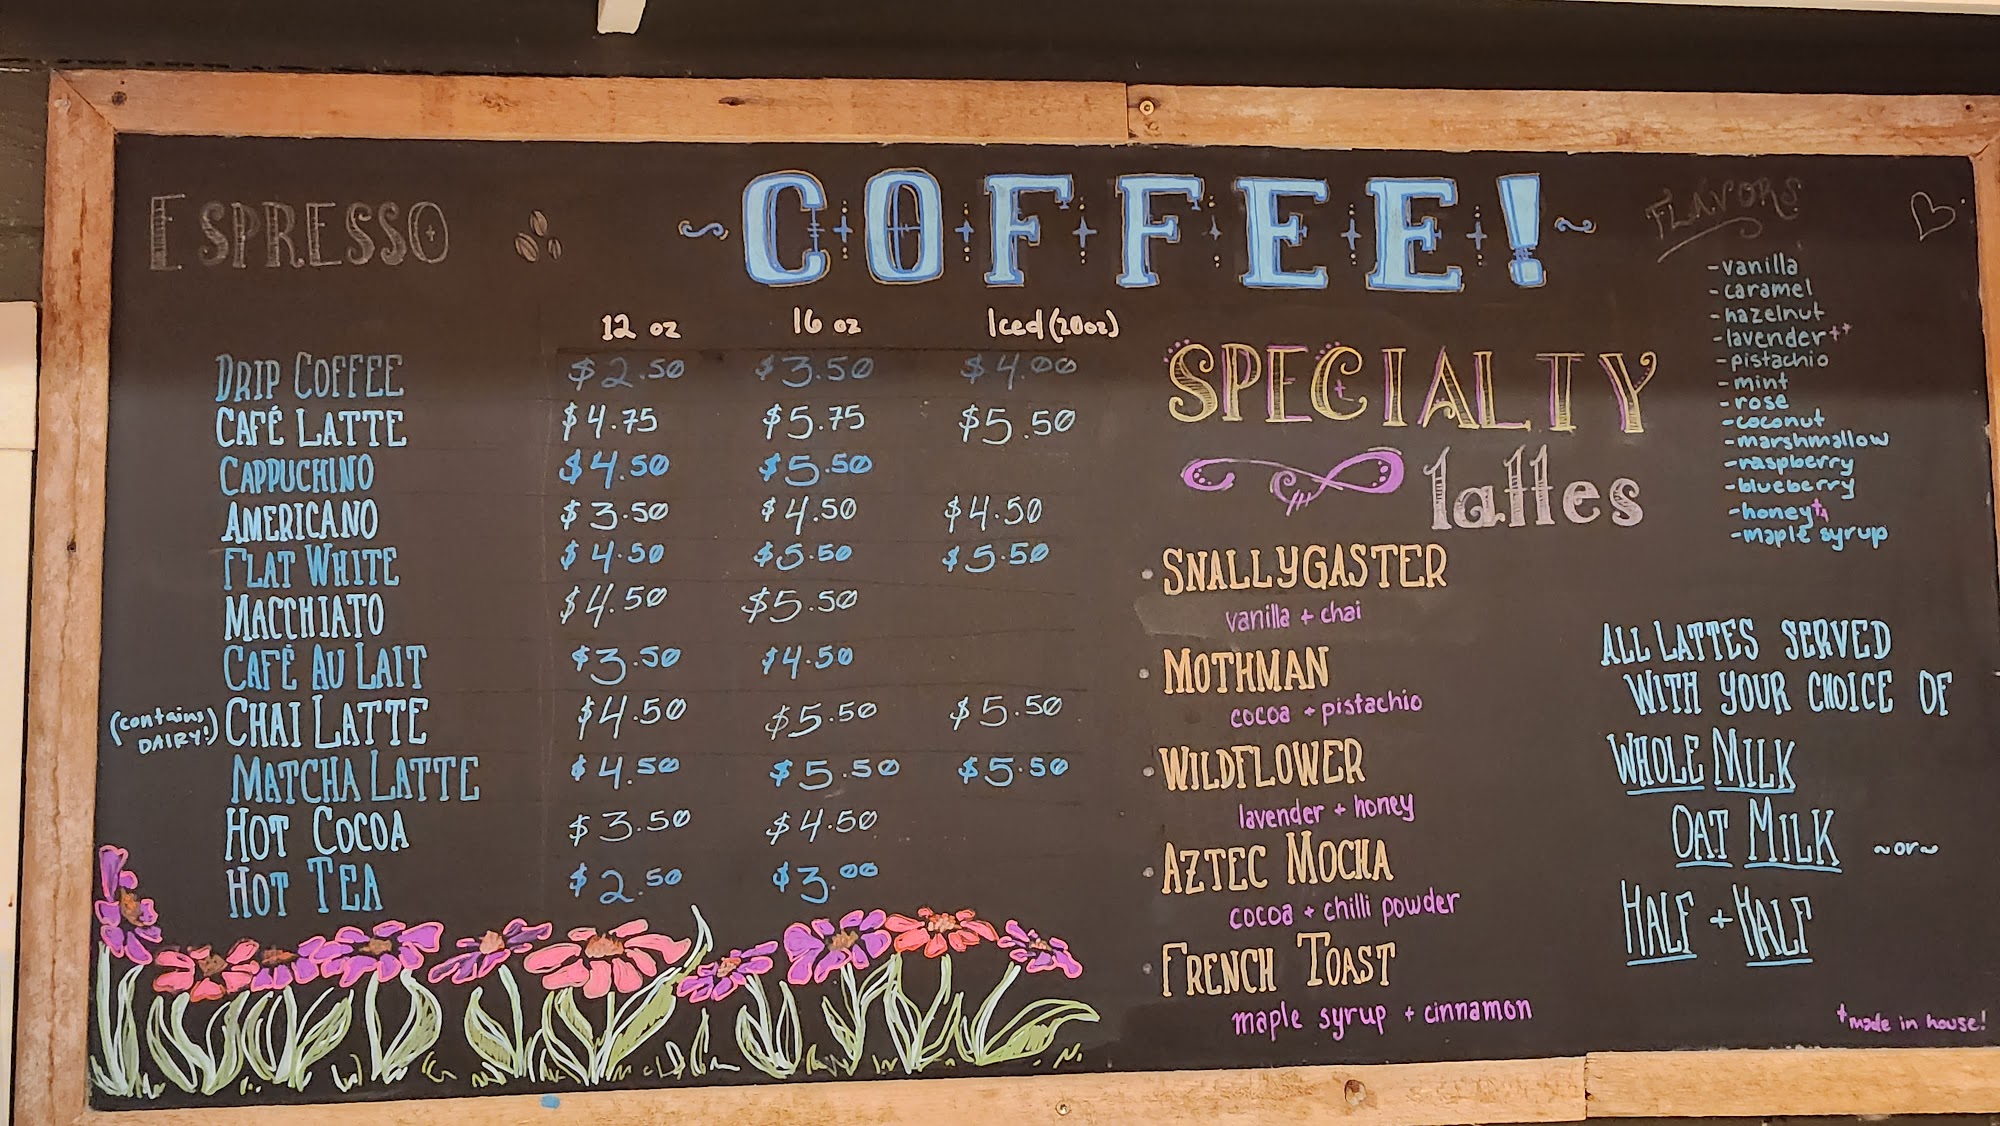 ESPRESSO
COFFEE!
12 oz 16 oz Iced (20oz)
DRIP COFFEE $2.50 $3.50 $4.00
CAFÉ LATTE $4.75 $5.75 $5.50
CAPPUCHINO $4.50 $5.50
AMERICANO $3.50 $4.50 $4.50
FLAT WHITE $4.50 $5.50 $5.50
MACCHIATO $4.50 $5.50
CAFÉ AU LAIT $3.50 $4.50
(contains DAIRY!) CHAI LATTE $4.50 $5.50 $5.50
MATCHA LATTE $4.50 $5.50 $5.50
HOT COCOA $3.50 $4.50
HOT TEA $2.50 $3.00
SPECIALTY
lattes
• SNALLYGASTER
vanilla + chai
• MOTHMAN
cocoa + pistachio
• WILDFLOWER
lavender + honey
• AZTEC MOCHA
cocoa + chilli powder
• FRENCH TOAST
maple syrup + cinnamon
FLAVORS
-vanilla
-caramel
-hazelnut
-lavender++
-pistachio
-mint
-rose
-coconut
-marshmallow
-raspberry
-blueberry
-honey++
-maple syrup
ALL LATTES SERVED
WITH YOUR CHOICE OF
WHOLE MILK
OAT MILK ~or~
HALF + HALF
+made in house!